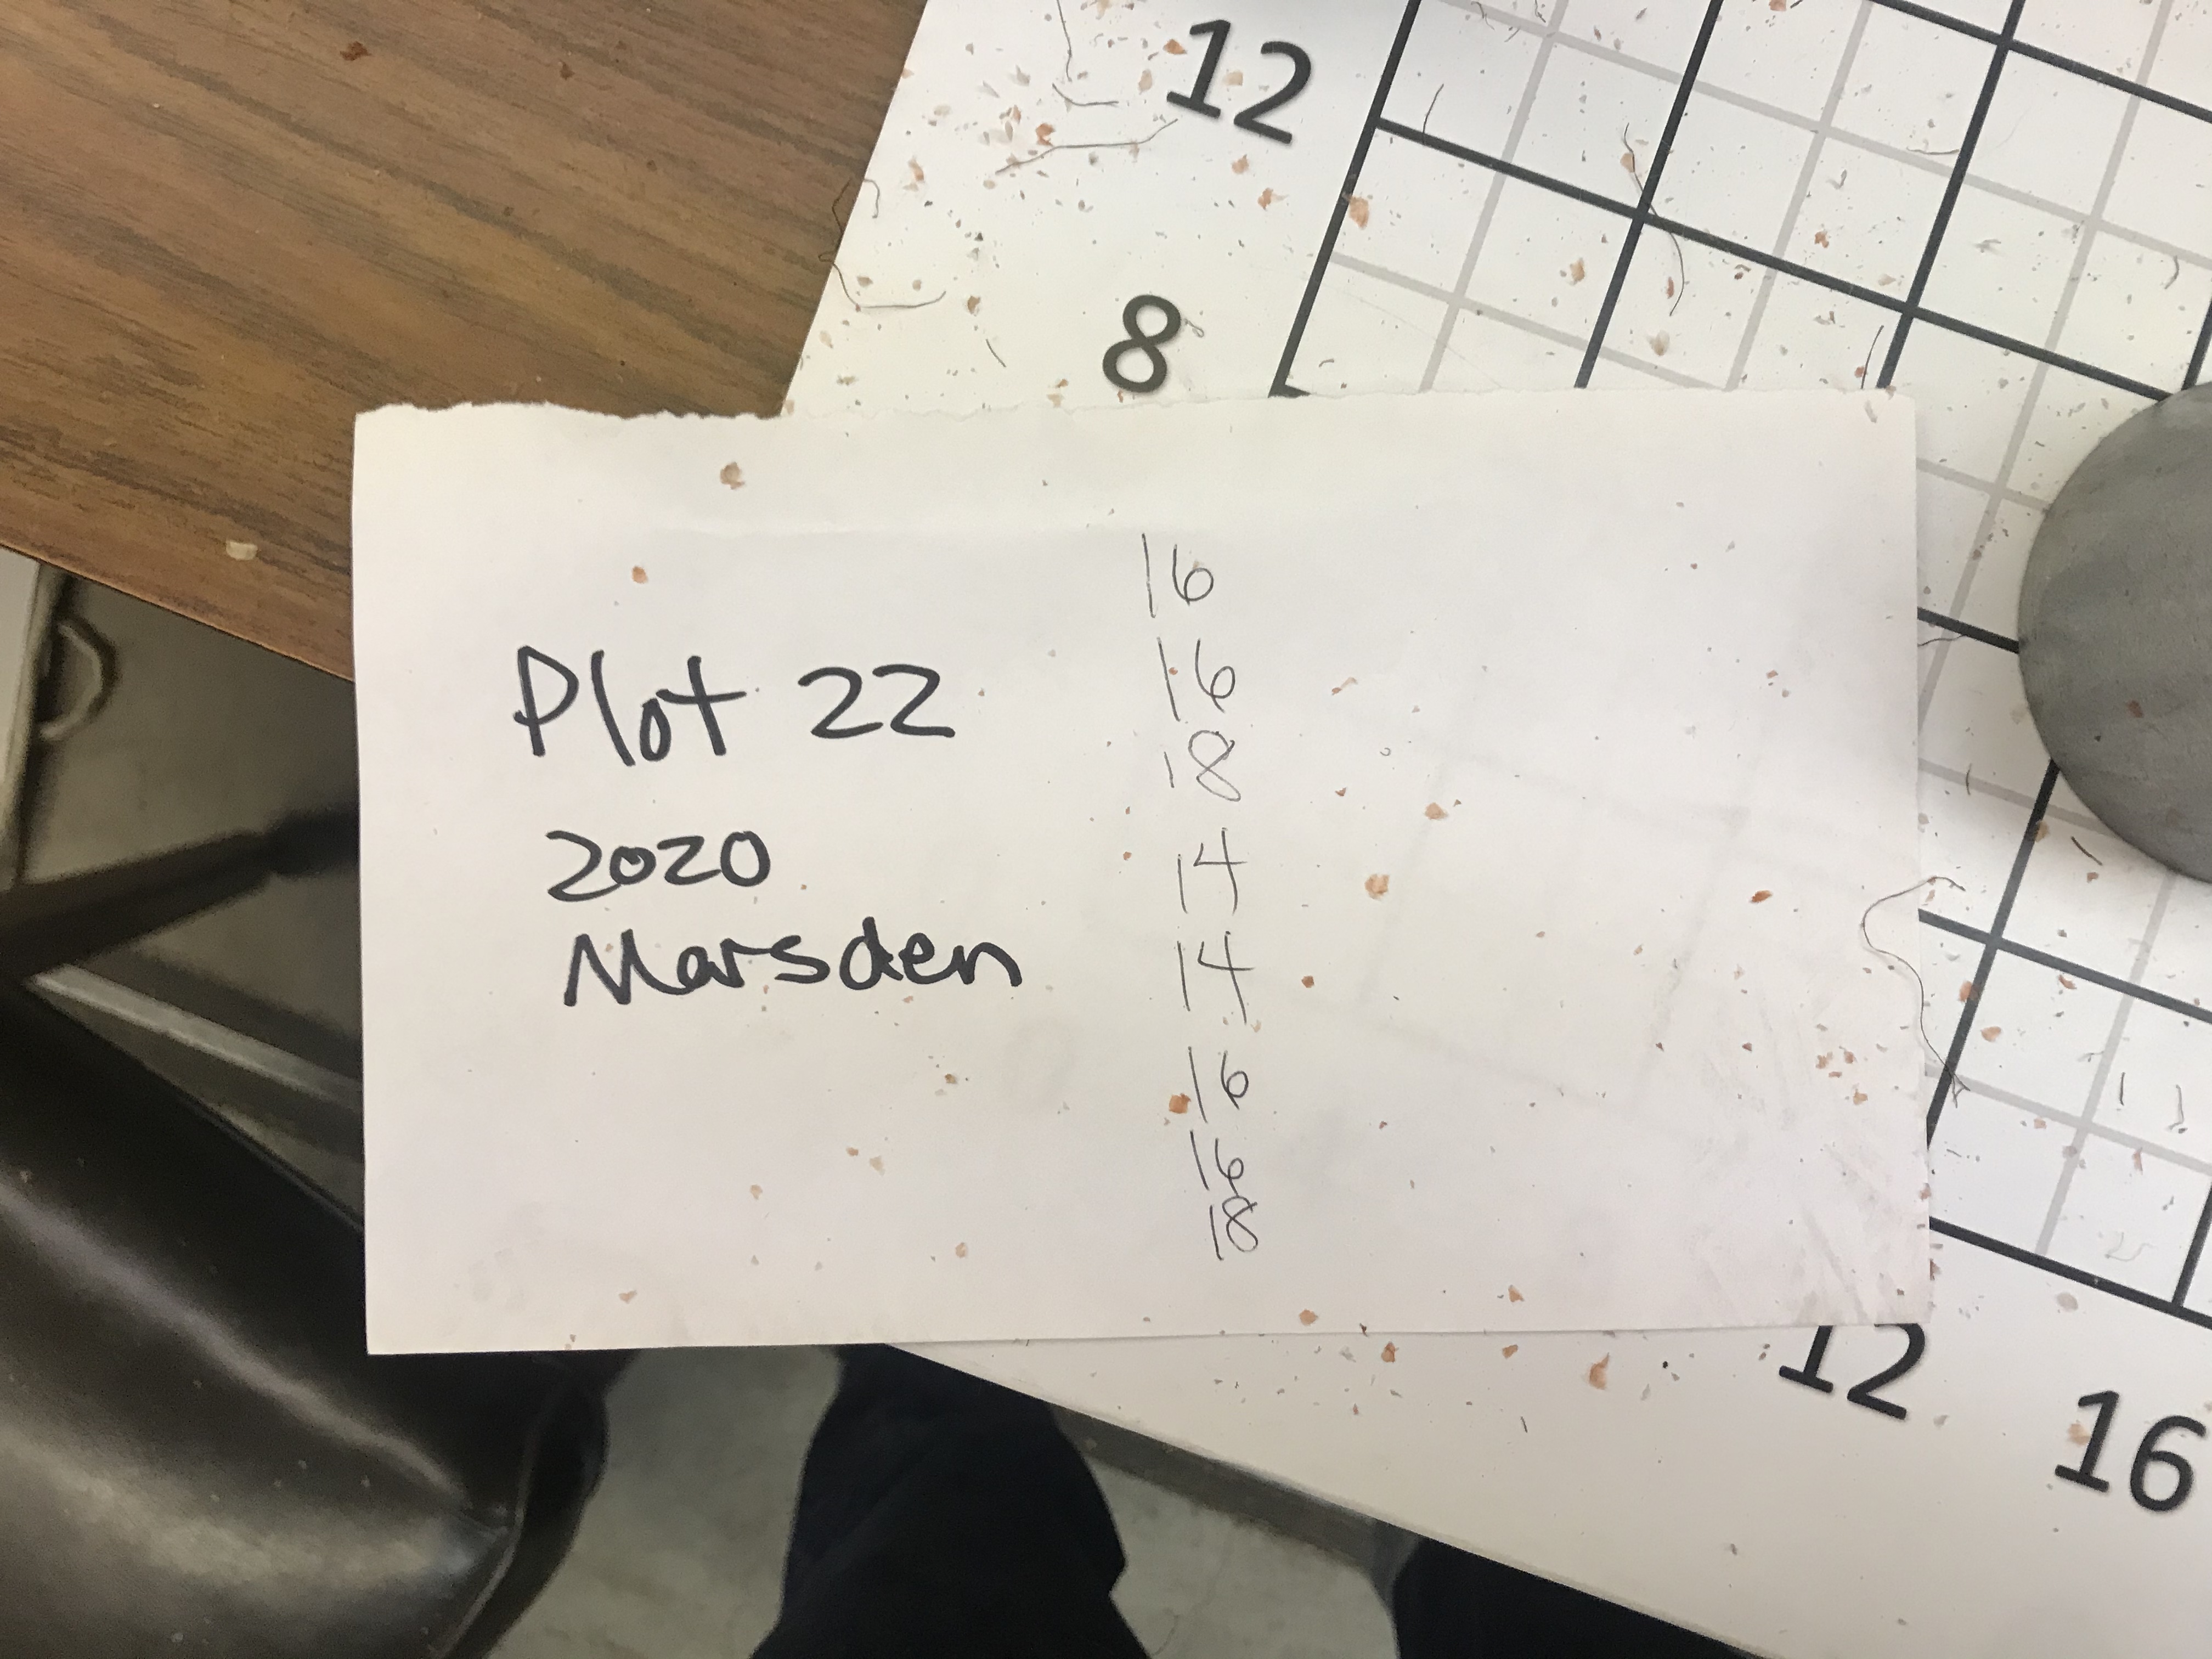 12
8
Plot 22
2020
Marsden
16
16
18
14
14
16
16
18
12
16